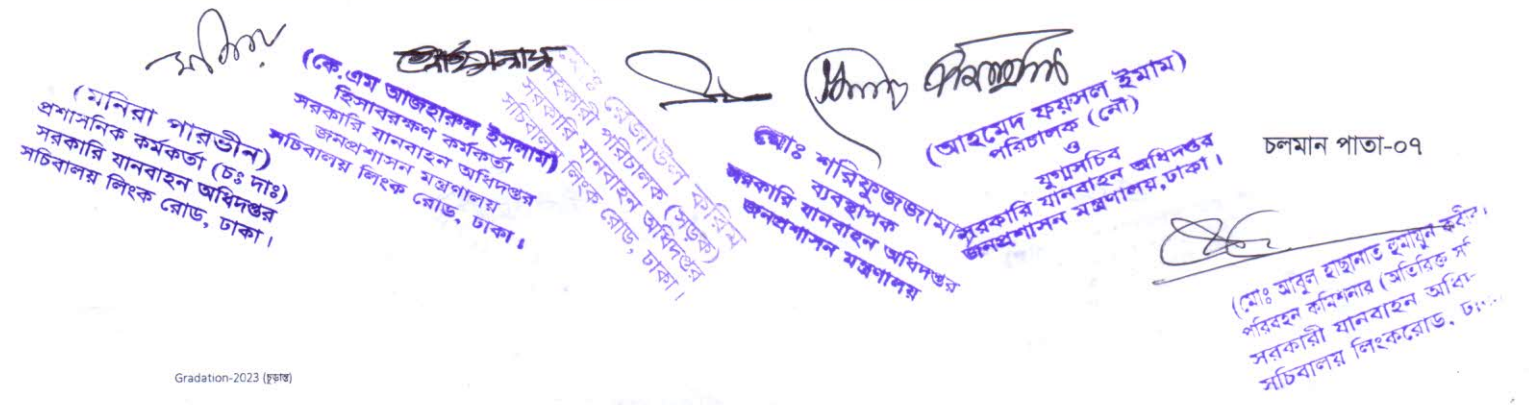 (মনিরা পারভীন)
প্রশাসনিক কর্মকর্তা (চঃ দাঃ)
সরকারি যানবাহন অধিদপ্তর
সচিবালয় লিংক রোড, ঢাকা।
(কে.এম আজহারুল ইসলাম)
হিসাবরক্ষণ কর্মকর্তা
সরকারি যানবাহন অধিদপ্তর
জনপ্রশাসন মন্ত্রণালয়
সচিবালয় লিংক রোড, ঢাকা।
মোঃ রেজাউল করিম
সহকারী পরিচালক (সড়ক)
সরকারি যানবাহন অধিদপ্তর
সচিবালয় লিংক রোড, ঢাকা।
মোঃ শরিফুজজামান
ব্যবস্থাপক
সরকারি যানবাহন অধিদপ্তর
জনপ্রশাসন মন্ত্রণালয়
(আহমেদ ফয়সল ইমাম)
পরিচালক (নৌ)
ও
যুগ্মসচিব
সরকারি যানবাহন অধিদপ্তর
জনপ্রশাসন মন্ত্রণালয়,ঢাকা।
চলমান পাতা-০৭
(মোঃ আবুল হাছানাত হুমায়ুন কবীর)
পরিবহন কমিশনার (অতিরিক্ত
সরকারী যানবাহন
সচিবালয় লিংকরোড,
Gradation-2023 (চূড়ান্ত)